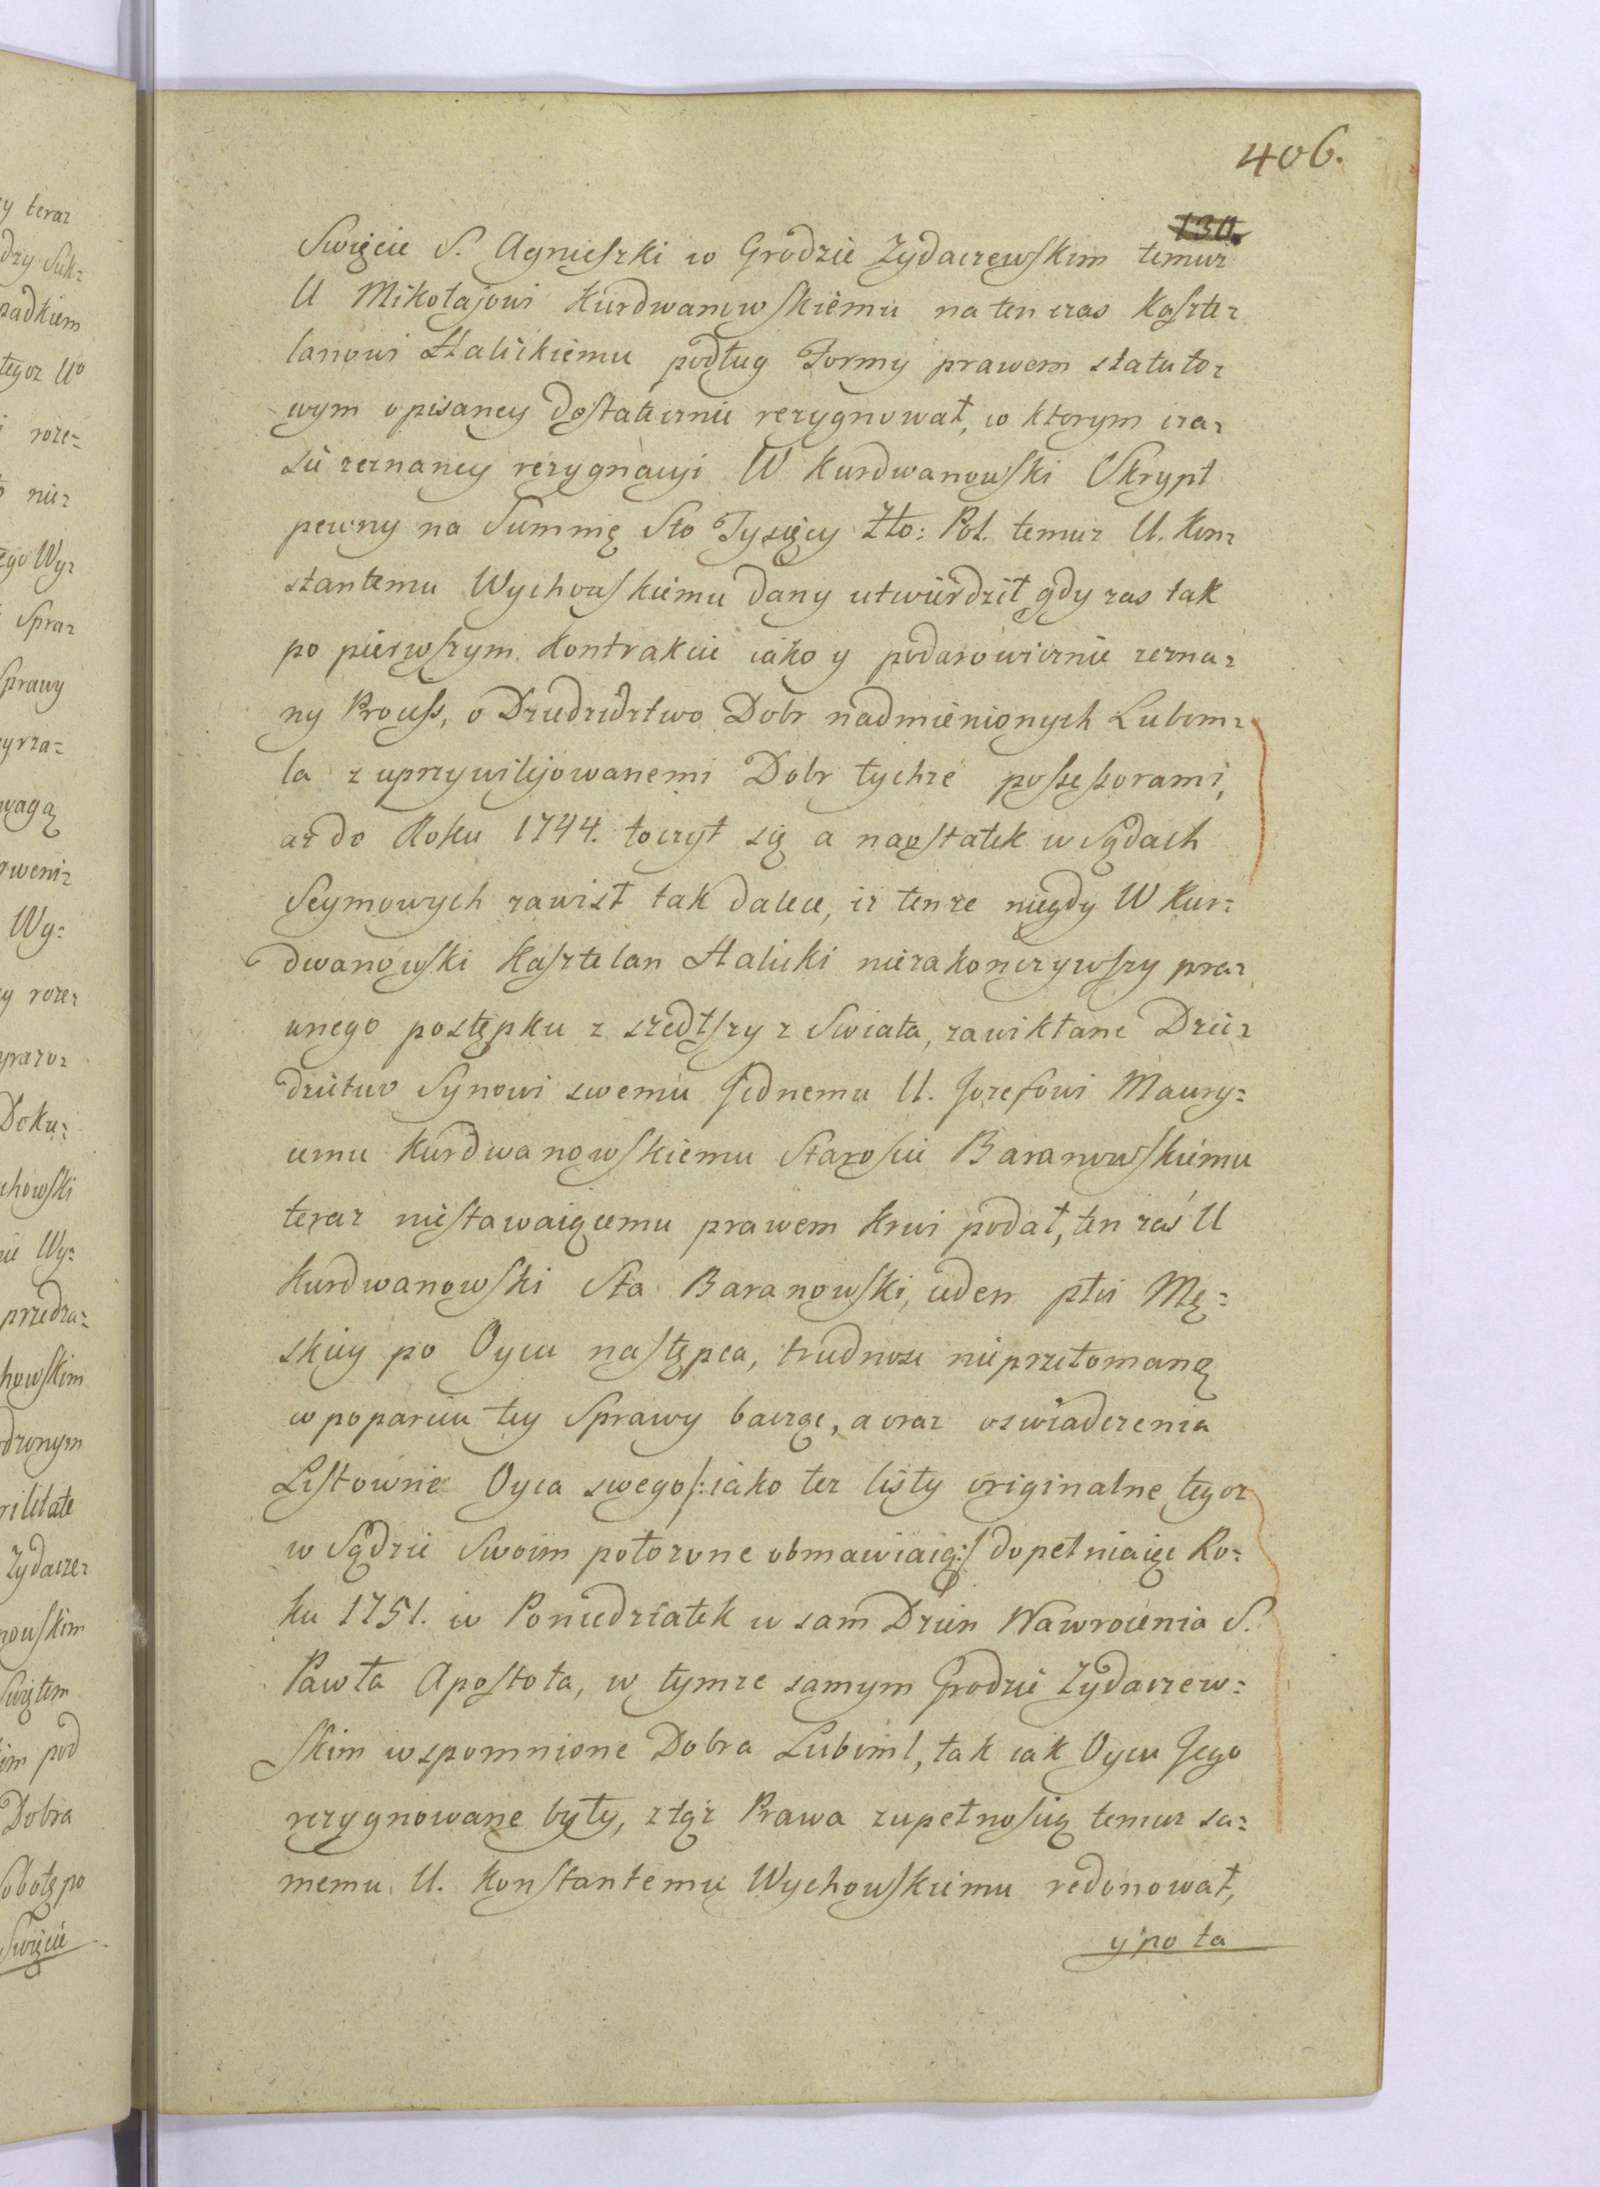 406.
130.
Swięcie S. Agnieszki w Grodzie Zydaczewskim temuz
U Mikołajowi Kurdwanowskiemu na ten czas Kaszte=
lanowi Halickiemu podług Formy prawem statuto=
wym opisaney dostatecznie rezygnował, w ktorym cza=
sie zeznaney rezygnacyi W Kurdwanowski Skrypt
pewny na Summę Sto Tysięcy Zło: Pol. temuz U. Kon=
stantemu Wychowskiemu dany utwierdził, gdy zas tak
po pierwszym Kontrakcie iako y podarowicznie zezna=
ny Process, o Dziedzidztwo Dobr nadmienionych Lubom=
la z uprzywilejowanemi Dobr tychze possessorami,
az do Roku 1744. toczył się a naostatek w Sądach
Seymowych zawisł tak dalece, iz tenze niegdy W Kur=
dwanowski Kasztelan Halicki niezakonczywszy praw=
nego postępku z szedłszy z Swiata, zawikłane Dzie=
dzictwo Synowi swemu Jednemu U. Jozefowi Maury=
cemu Kurdwanowskiemu Staroscie Baranowskiemu
teraz niestawaiącemu prawem Krwi podał, ten zaś U
Kurdwanowski Sta Baranowski, ieden płci Mę=
skiey po Oycu następca, trudnosc nieprzełomaną
w poparciu tey Sprawy bacząc, a oraz oswiadczenia
Listowne Oyca swego /: iako tez listy originalne tegoz
w Sądzie Swoim połozone obmawiaią :/ dopełniaiąc Ro=
ku 1751. w Poniedziałek w sam Dzien Nawrocenia S.
Pawła Apostoła, w tymze samym Grodzie Zydaczew=
skim wspomnione Dobra Luboml, tak iak Oycu Jego
rezygnowane były, z tąz Prawa zupełnością temuz sa=
memu U. Konstantemu Wychowskiemu redonował,
y po ta